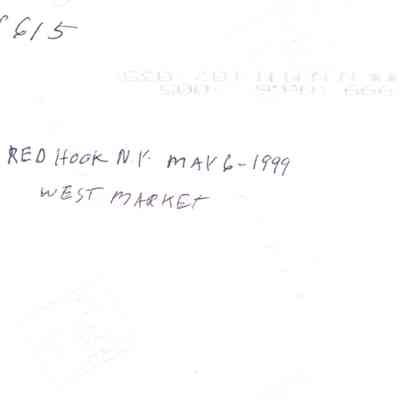 615
RED HOOK N.Y. MAY 6-1999
WEST MARKET